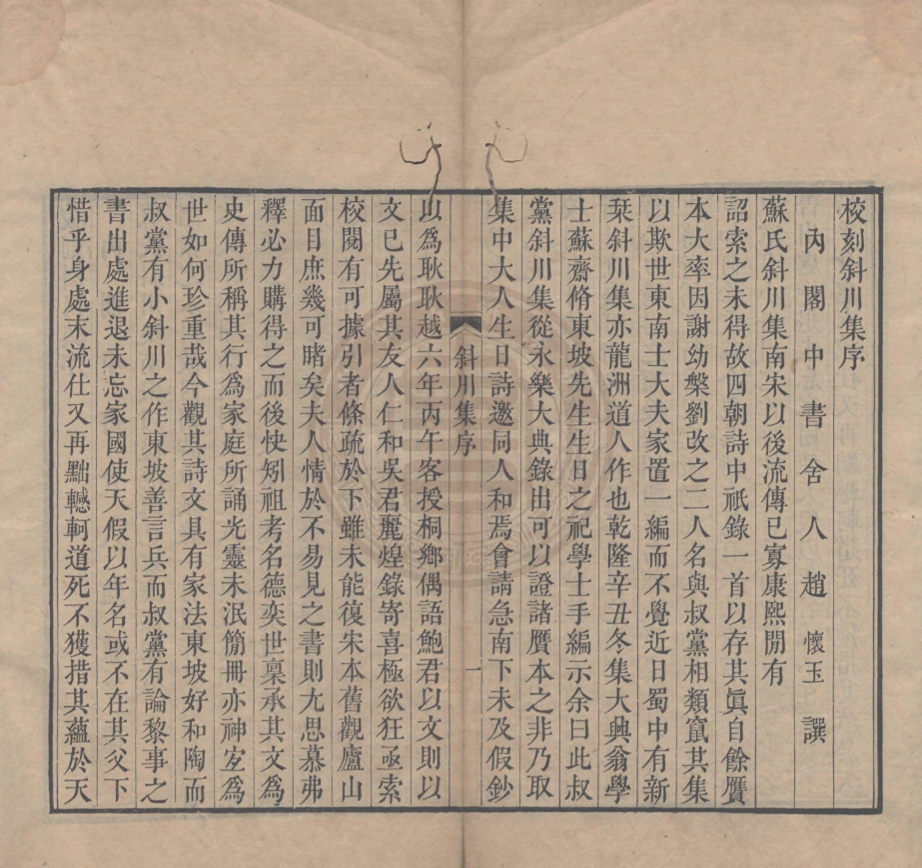 校刻斜川集序
內閣中書舍人趙懷玉譔
蘇氏斜川集南宋以後流傳已寡康熙閒有
詔索之未得故四朝詩中祇錄一首以存其眞自餘贋
本大率因謝幼槃劉改之二人名與叔黨相類竄其集
以欺世東南士大夫家置一編而不覺近日蜀中有新
栞斜川集亦龍洲道人作也乾隆辛丑冬集大興翁學
士蘇齋脩東坡先生生日之祀學士手編示余曰此叔
黨斜川集從永樂大典錄出可以證諸贋本之非乃取
集中大人生日詩邀同人和焉會請急南下未及假鈔
以爲耿耿越六年丙午客授桐鄉偶語鮑君以文則以
文已先屬其友人仁和吳君麗煌錄寄喜極欲狂亟索
校閱有可據引者條疏於下雖未能復宋本舊觀廬山
面目庶幾可睹矣夫人情於不易見之書則尤思慕弗
釋必力購得之而後快矧祖考名德奕世稟承其文爲
史傳所稱其行爲家庭所誦光靈未泯簡冊亦神宐爲
世如何珍重哉今觀其詩文具有家法東坡好和陶而
叔黨有小斜川之作東坡善言兵而叔黨有論黎事之
書出處進退未忘家國使天假以年名或不在其父下
惜乎身處末流仕又再黜轗軻道死不獲措其蘊於天
斜川集序
一